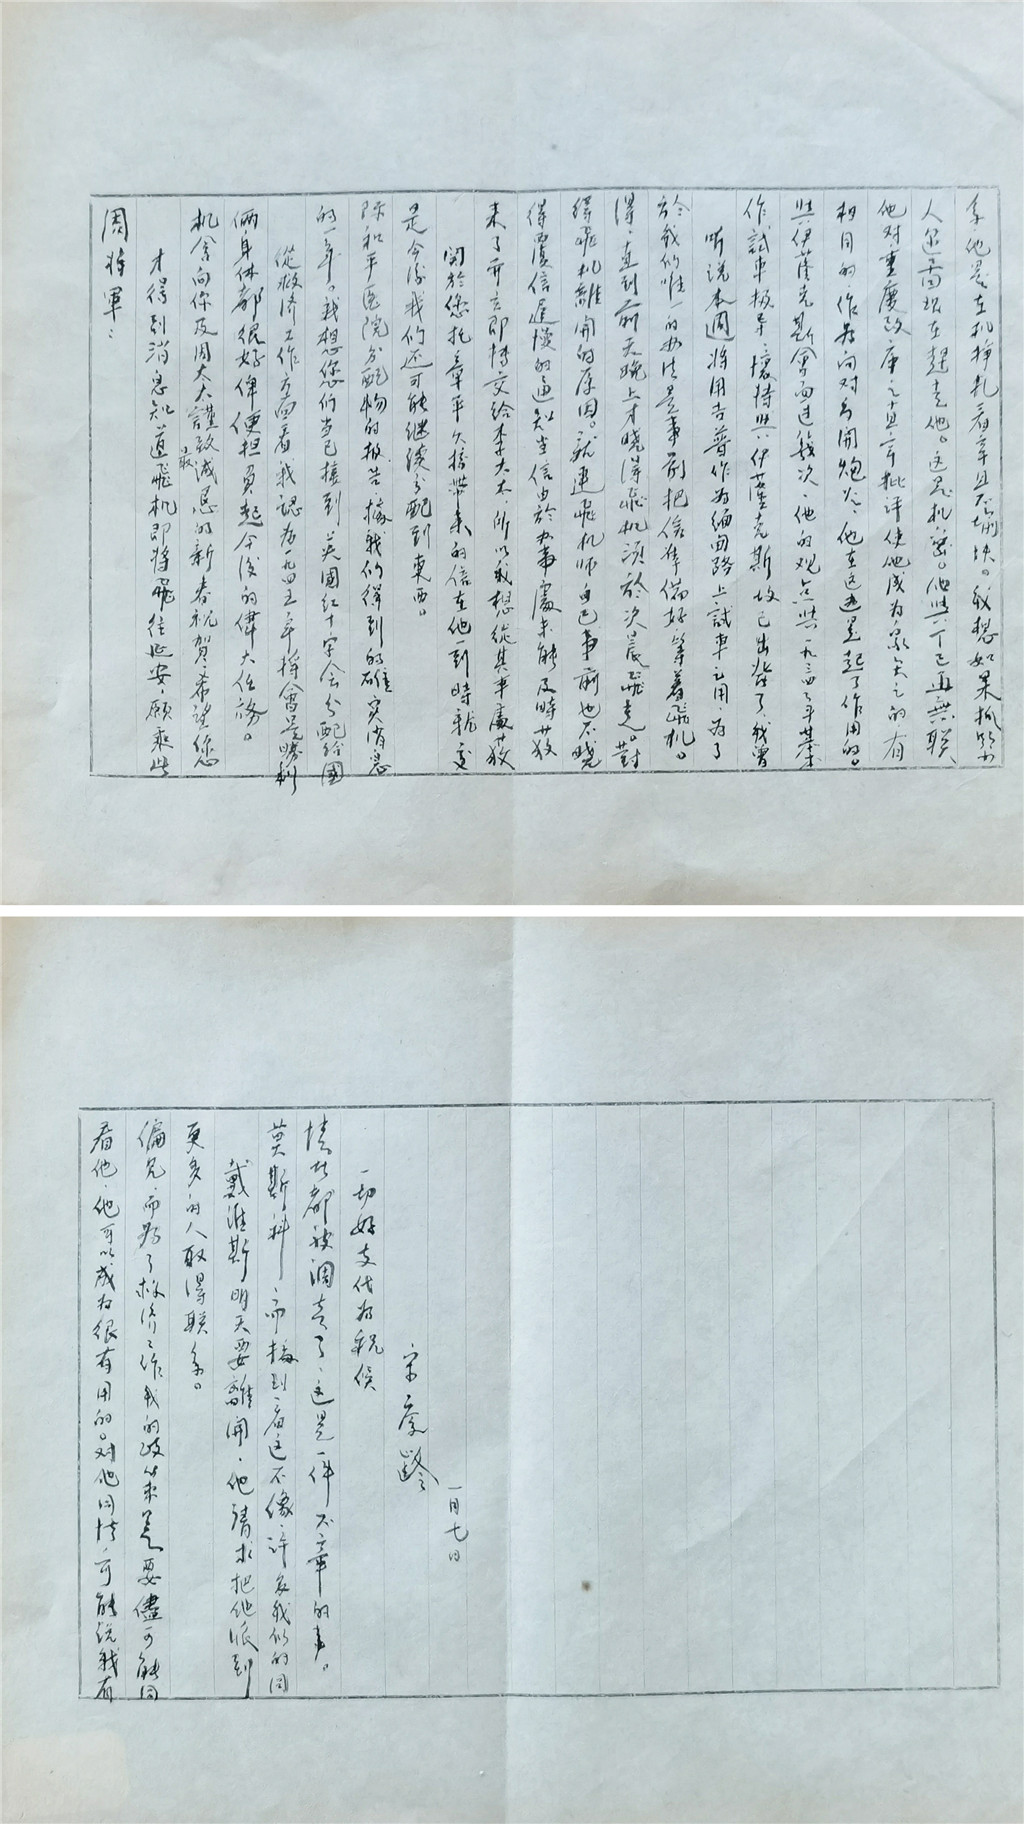 周将軍：
才得到消息知道飛机即将飛往延安，願乘此
机會向你及周太太謹致最誠恳的新春祝賀希望您
倆身体都很好俾便担負起今後的偉大任務。
從救济工作方面看，我認为一九四五年將會是勝利
的一年。我想您們当已接到英國红十字会分配给國
际和平医院分配物的报告據我們得到的確实消息
是今後我们还可能继續分配到東西。
関於您托章平久捎带来的信在他一到時就交
来了并立即博交给李太太，所以我想從其事處获
得覆信遲慢的通知当信由於办事處未能及時获
得飛机離開的原因。就連飛机师自己事前也不晓
得，直到前天晚上才晓得飛机須於次晨飛走。對
於我们唯一的办法是事前把信準備好等着飛机。
听说本週将用吉普作为缅甸路上試車之用，为了
作試車報导，懷特與伊薩克斯故已出發了，我曾
與伊薩克斯會面过幾次，他的观点與一九三四年某某
相同的，作为向对方開炮火，他在这边是起了作用的。
他对重慶政府之直言批评使他成为眾矢之的有
人恐吓现在赶走他。这是机密。他與丁已通無联
系，他是在机掙扎看并且不愉快。我想如果抓緊
看他，他可以成为很有用的。对他同情，可能说我有
偏見，而为了救济工作我的政策是要儘可能同
更多的人取得联系。
戴維斯明天要離開，他請求把他派到
莫斯科，而接到看这不像，許多我们的同
情者都被调走了，这是一件不幸的事。
一切好友代为祝候
宋慶齡
一月七日